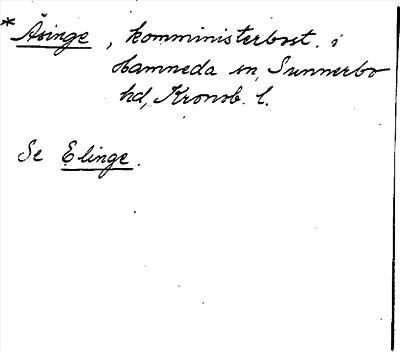 * Åsinge, komministerbost. i
Hamneda sn, Sunnerbo
hd, Kronob. l.
Se Elinge.